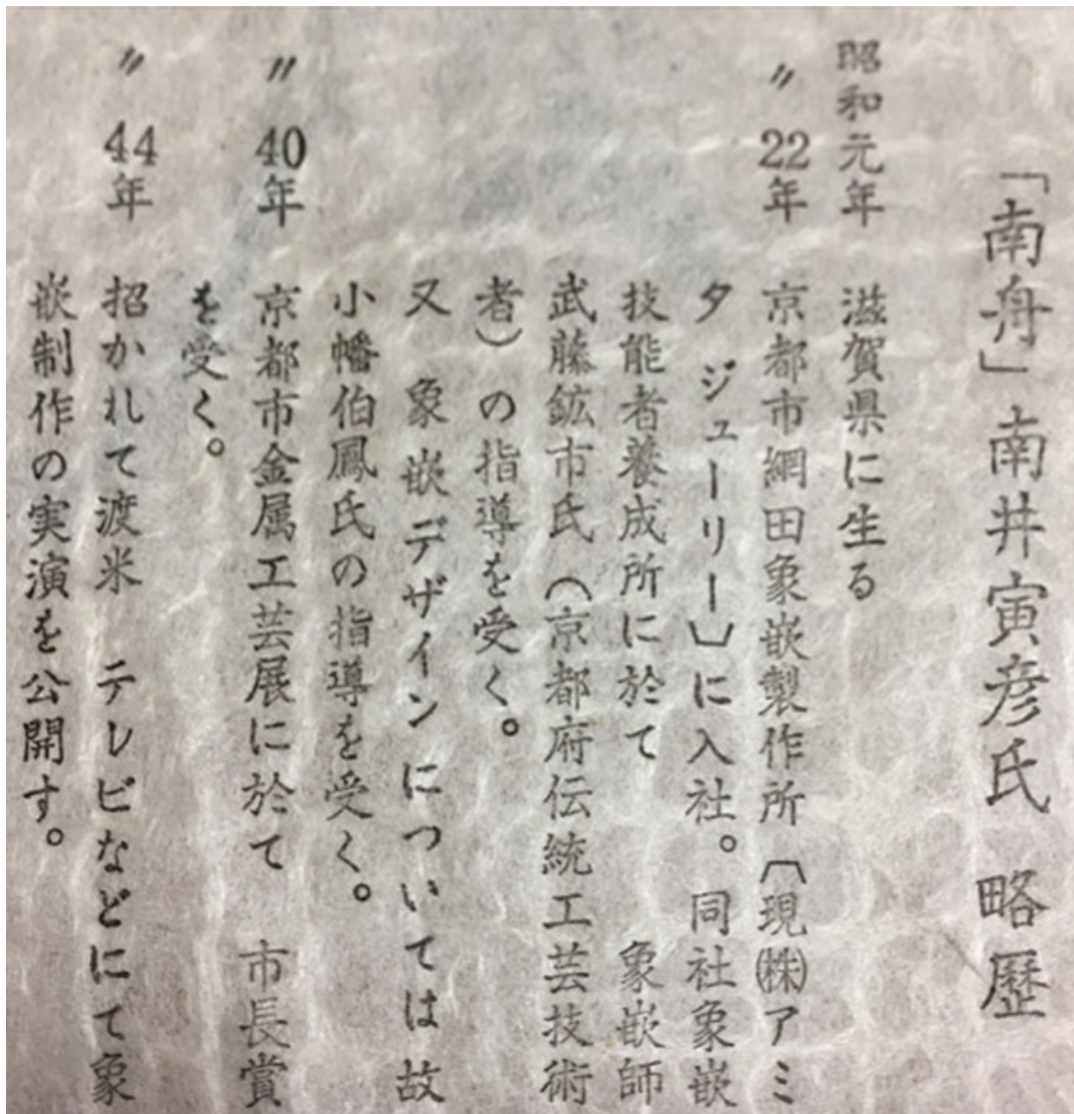 「南舟」南井寅彦氏 略歴
昭和元年 滋賀県に生る
〃 22年 京都市網田象嵌製作所〔現㈱アミ
タ ジューリー〕に入社。同社象嵌
技能者養成所に於て 象嵌師
武藤鉱市氏（京都府伝統工芸技術
者）の指導を受く。
又 象嵌デザインについては故
小幡伯鳳氏の指導を受く。
〃 40年 京都市金属工芸展に於て 市長賞
を受く。
〃 44年 招かれて渡米 テレビなどにて象
嵌制作の実演を公開す。